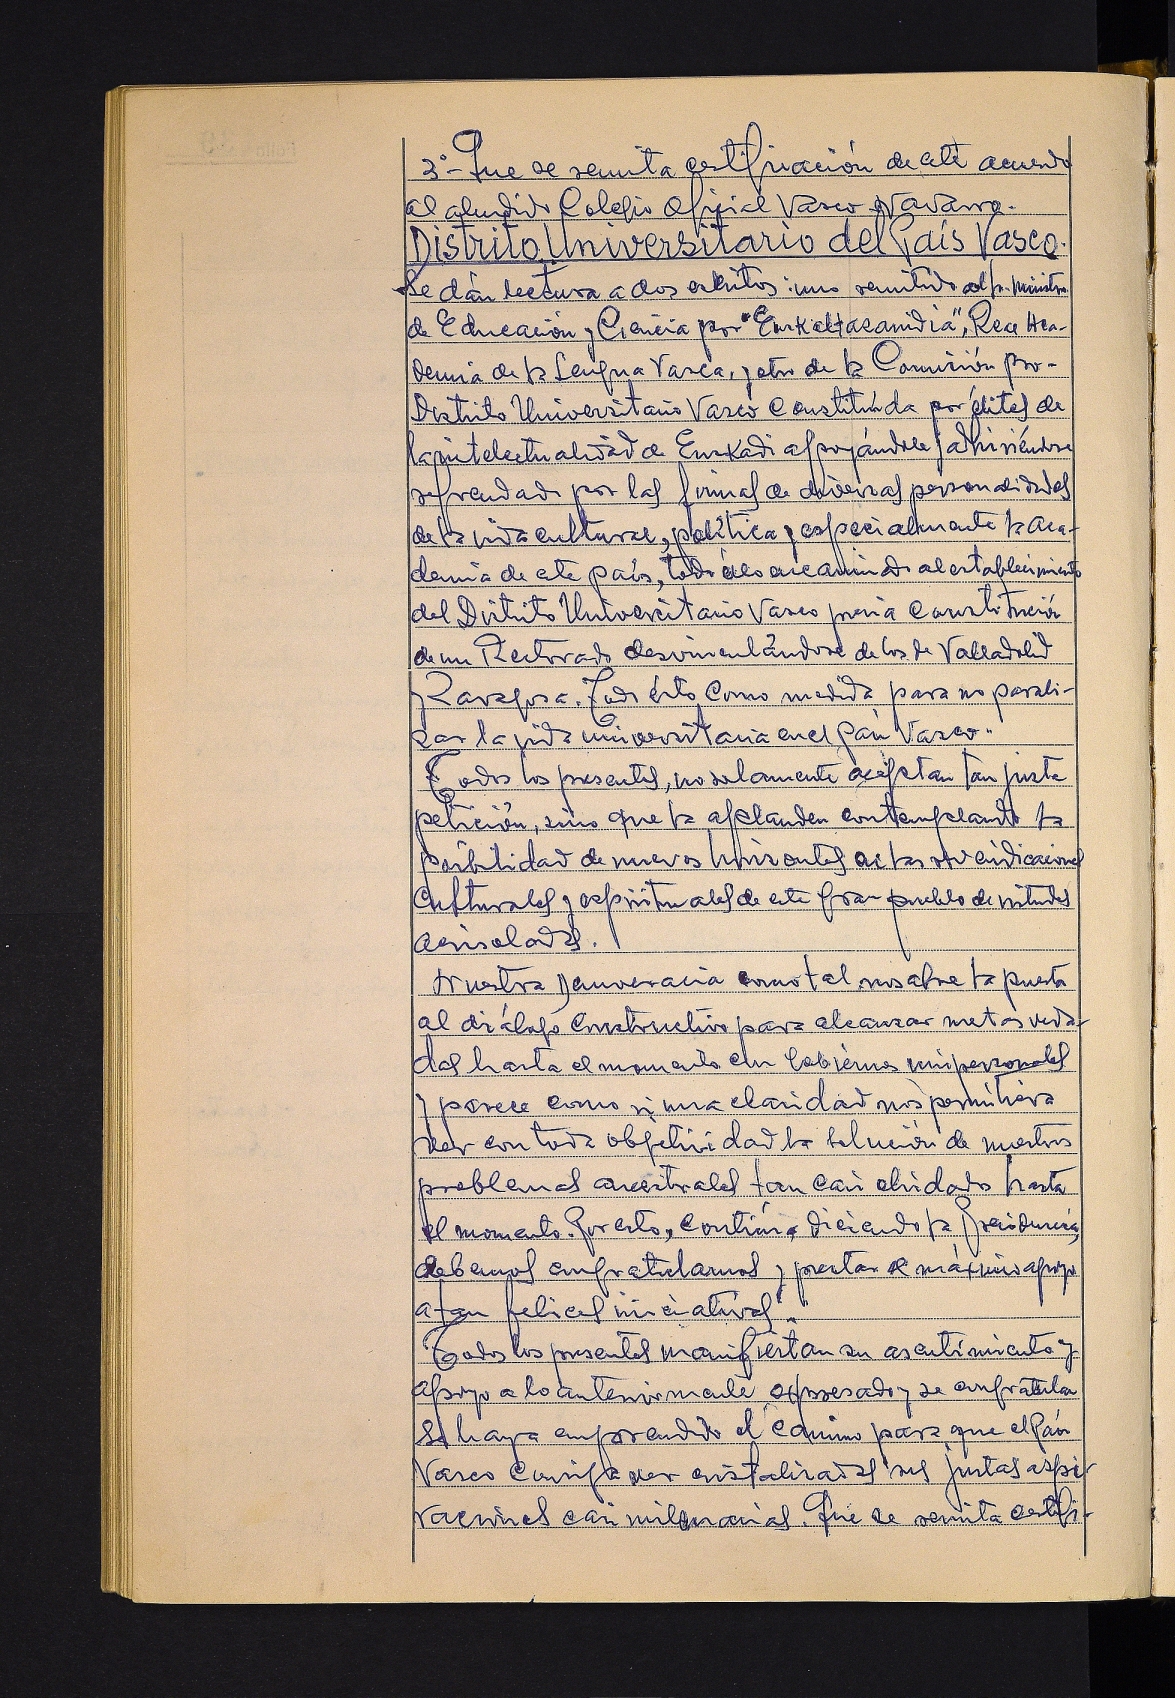 3º- Que se remita certificación de este acuerdo
al aludido Colegio Oficial Vasco Navarro.
Distrito Universitario del País Vasco.
Se dán lectura a dos escritos: uno remitido al Sr. Ministro
de Educación y Ciencia por "Euskaltzaindia", Real Aca-
demia de la Lengua Vasca, y otro de la Comisión pro-
Distrito Universitario Vasco constituída por élites de
la intelectualidad de Euskadi apoyándole y adhiriéndose
refrendado por las firmas de diversas personalidades
de la vida cultural, política y especialmente la aca-
demia de este país, todo ello encaminado al establecimiento
del Distrito Universitario Vasco previa constitución
de un Rectorado desvinculándose de los de Valladolid
y Zaragoza. Todo ésto como medida para no parali-
zar la vida universitaria en el País Vasco.
Todos los presentes, no solamente aceptan tan justa
petición, sino que la aplauden contemplando la
posibilidad de nuevos horizontes en las reivindicaciones
culturales y espirituales de este gran pueblo de virtudes
acrisoladas.
Nuestra Democracia como tal nos abre la puerta
al diálogo constructivo para alcanzar metas veda-
das hasta el momento en Gobiernos unipersonales
y parece como si una claridad nos permitiera
ver con toda objetividad la solución de nuestros
problemas ancestrales tan casi olvidados hasta
el momento. Por esto, continúa diciendo la Presidencia,
debemos congratularnos y prestar el máximo apoyo
a tan felices iniciativas.
Todos los presentes manifiestan su asentimiento y
apoyo a lo anteriormente expresado y se congratulan
se haya emprendido el camino para que el País
Vasco consiga ver cristalizadas sus justas aspi-
raciones casi milenarias. Que se remita certifi-